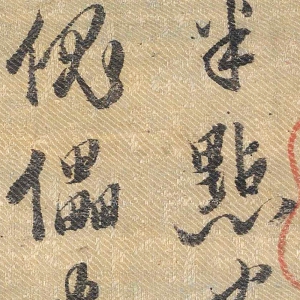 半點
傀儡